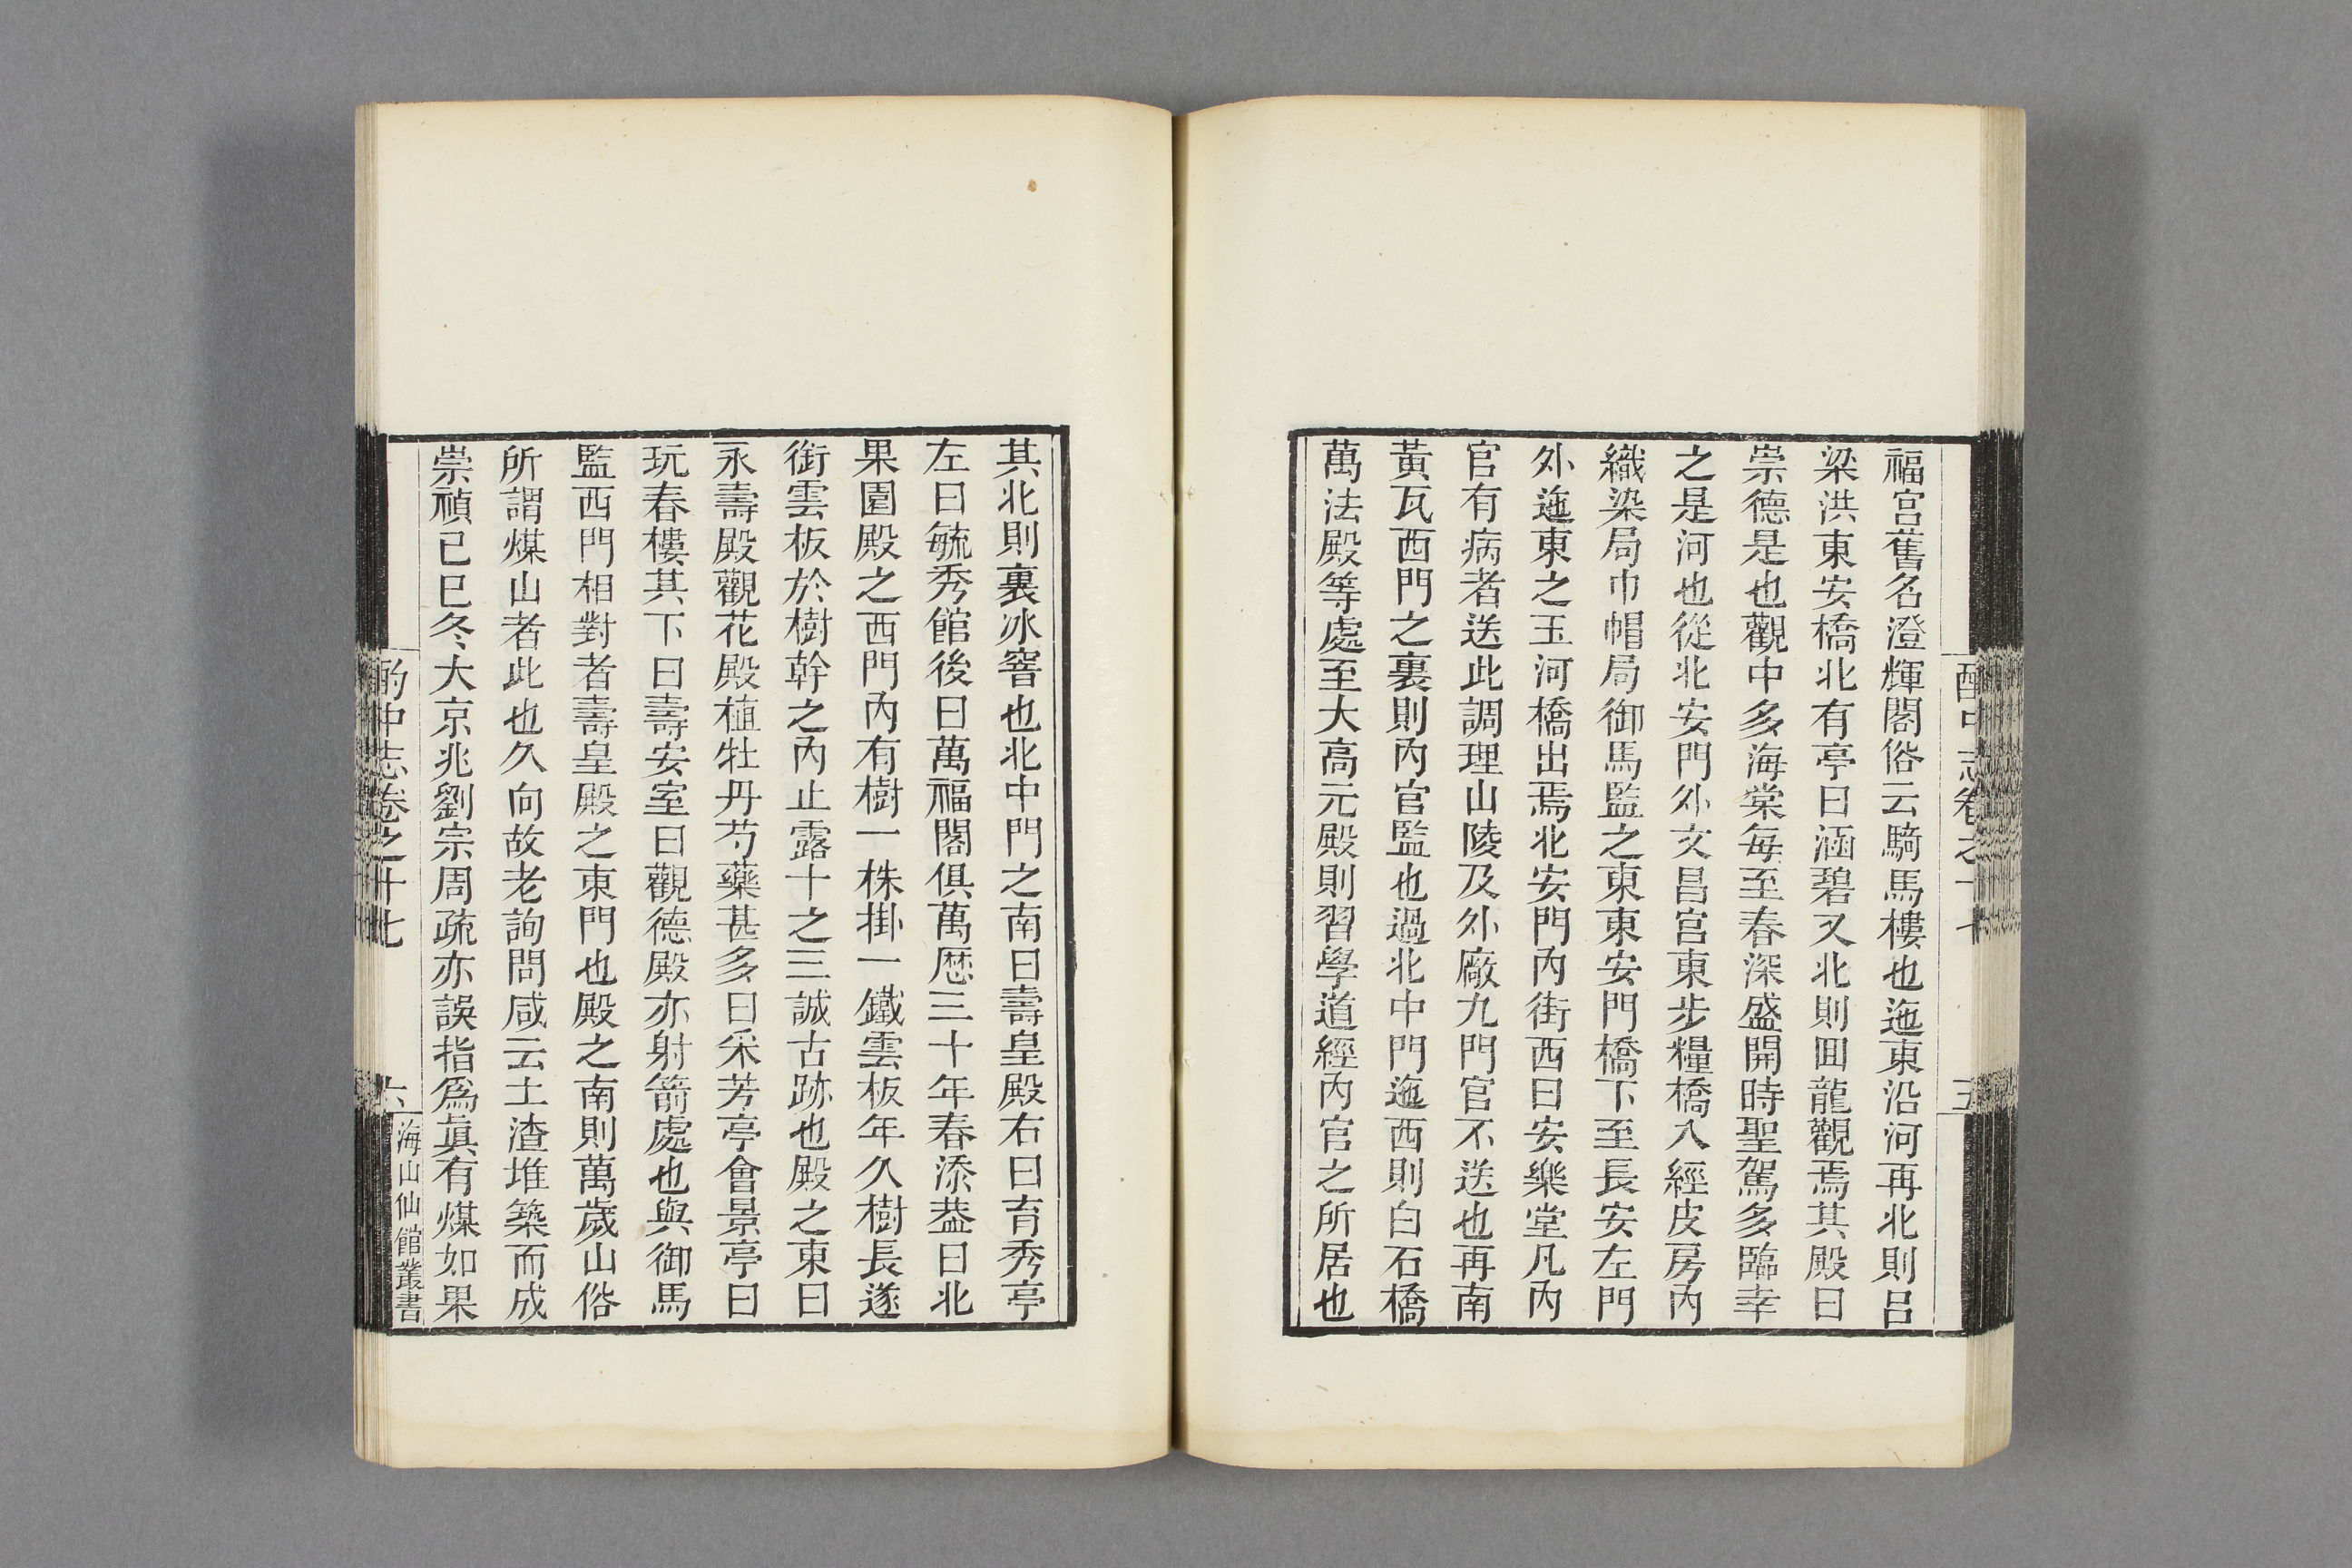 福宮舊名澄輝閣俗云騎馬樓也迤東沿河再北則呂
梁洪東安橋北有亭曰涵碧又北則回龍觀焉其殿曰
崇德是也觀中多海棠每至春深盛開時聖駕多臨幸
之是河也從北安門外文昌宮東步糧橋入經皮房內
織染局巾帽局御馬監之東東安門橋下至長安左門
外迤東之玉河橋出焉北安門內街西曰安樂堂凡內
官有病者送此調理山陵及外廠九門官不送也再南
黃瓦西門之裏則內官監也過北中門迤西則白石橋
萬法殿等處至大高元殿則習學道經內官之所居也
其北則裏冰窖也北中門之南曰壽皇殿右曰育秀亭
左曰毓秀館後曰萬福閣俱萬歷三十年春添葢曰北
果園殿之西門內有樹一株掛一鐵雲板年久樹長遂
銜雲板於樹幹之內止露十之三誠古跡也殿之東曰
永壽殿觀花殿植牡丹芍藥甚多曰采芳亭會景亭曰
玩春樓其下曰壽安室曰觀德殿亦射箭處也與御馬
監西門相對者壽皇殿之東門也殿之南則萬歲山俗
所謂煤山者此也久向故老詢問咸云土渣堆築而成
崇禎已巳冬大京兆劉宗周疏亦誤指爲眞有煤如果
酌中志卷之十七
六
海山仙館叢書